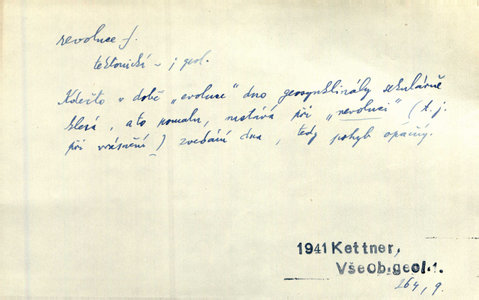 revoluce f.
tektonická – j geol.
Kdežto v době „evoluce" dno geosynklinály sekulárně
klesá, a to pomalu, nastává při „revoluci" (t. j.
při vrásnění) zvedání dna, tedy pohyb opačný.
1941 Kettner,
Všeob.geol.1.
264, 9.